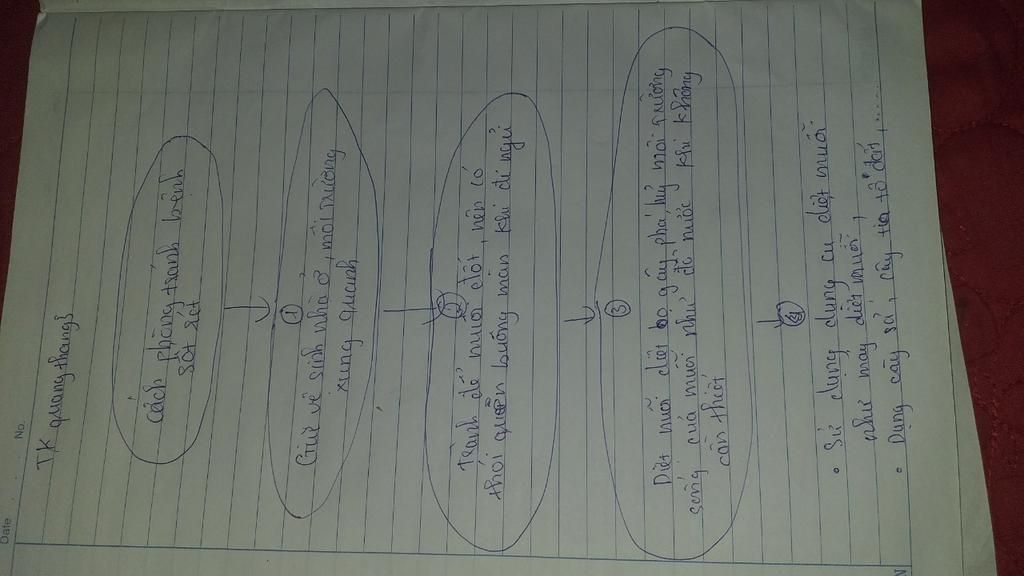 Date
No.
TK quangthang3
cách phòng tránh bệnh
sốt rét
①
Giữ vệ sinh nhà ở, môi trường
xung quanh
②
Tránh để muỗi đốt, nên có
thói quen buông màn khi đi ngủ
③
Diệt muỗi diệt bọ gậy phá huỷ môi trường
sống của muỗi như đồ nước khi không
cần thiết
④
• Sử dụng dụng cụ diệt muỗi
như máy diệt muỗi,
• Dùng cây sả, cây tía tô đốt,......